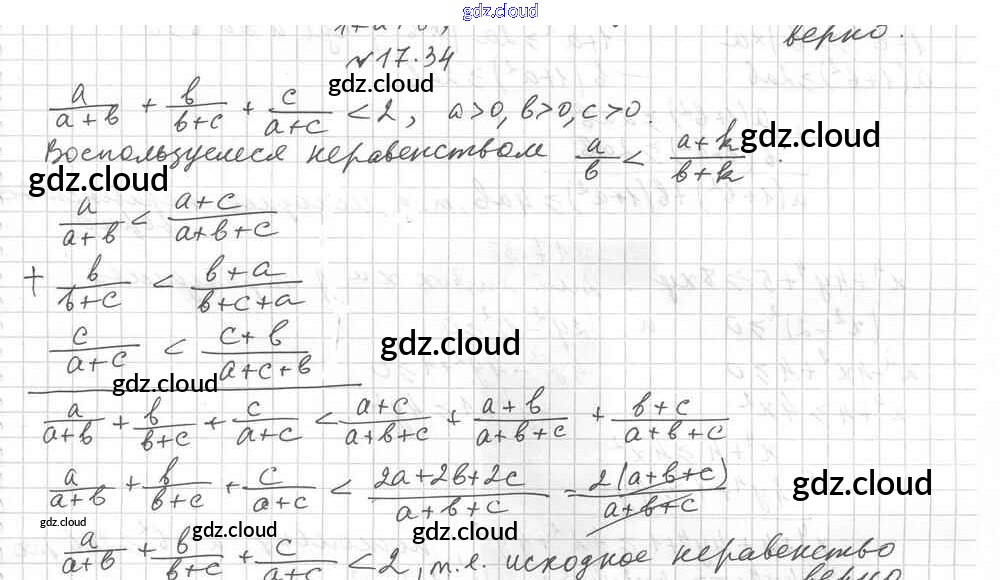 gdz.cloud
1+a+b,
верно.
№17.34
gdz.cloud
a/(a+b) + b/(b+c) + c/(a+c) < 2, a>0, b>0, c>0.
Воспользуемся неравенством a/b < (a+k)/(b+k).
gdz.cloud
gdz.cloud
a/(a+b) < (a+c)/(a+b+c)
+ b/(b+c) < (b+a)/(b+c+a)
c/(a+c) < (c+b)/(a+c+b)
gdz.cloud
gdz.cloud
a/(a+b) + b/(b+c) + c/(a+c) < (a+c)/(a+b+c) + (a+b)/(a+b+c) + (b+c)/(a+b+c)
a/(a+b) + b/(b+c) + c/(a+c) < (2a+2b+2c)/(a+b+c) = 2(a+b+c)/(a+b+c)
gdz.cloud
gdz.cloud
gdz.cloud
gdz.cloud
a/(a+b) + b/(b+c) + c/(a+c) < 2, т.е. исходное неравенство
верно